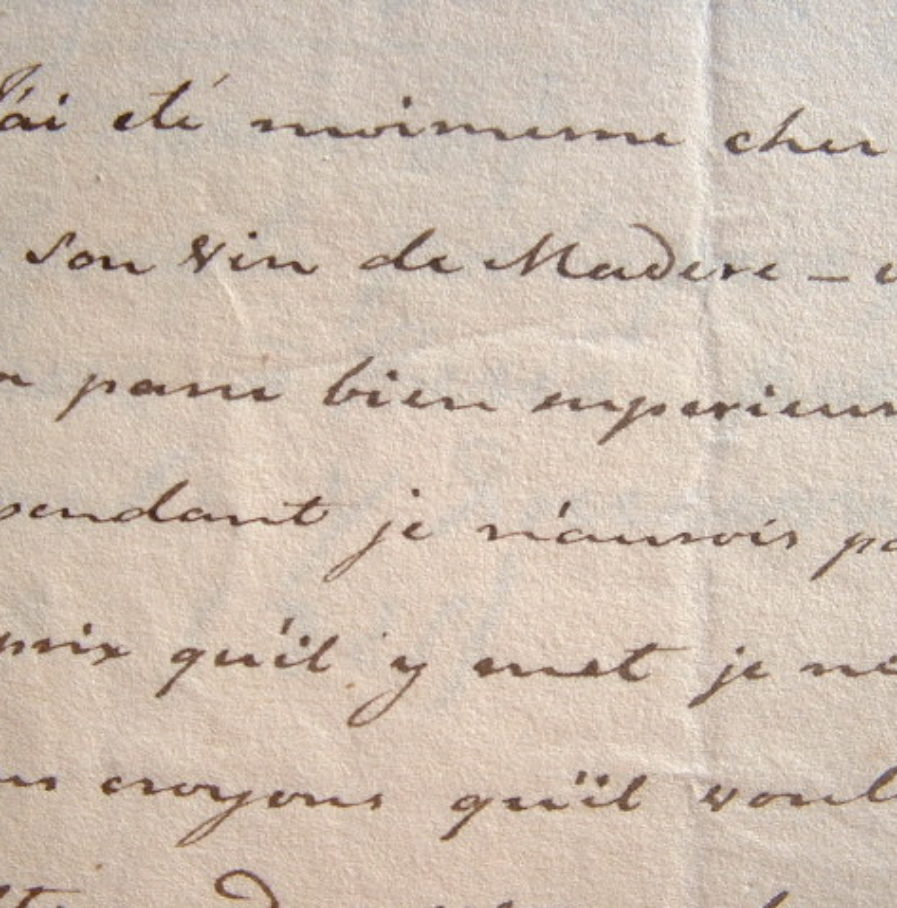 J'ai eté moimeme cher
son vin de Madere –
paru bien superieur
pendant je n'aurois pa
prix qu'il y met je ne
croyons qu'il voul